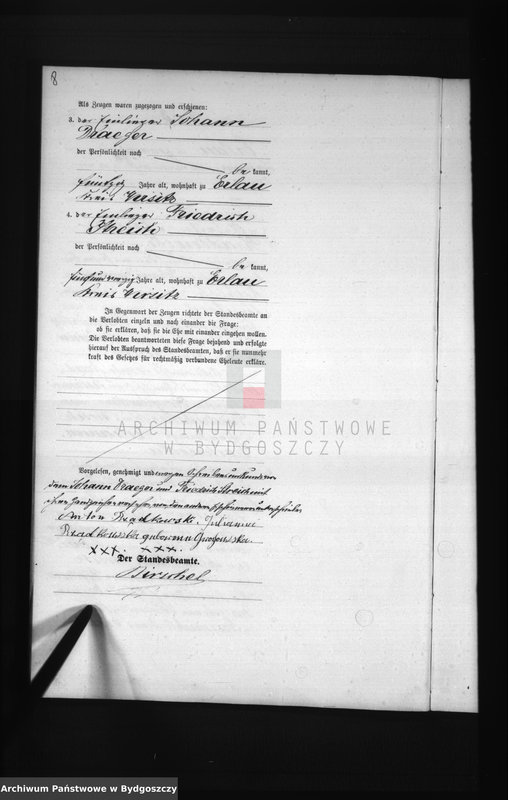 8
Als Zeugen waren zugezogen und erschienen:
3. der Einlieger Johann
Draeger
der Persönlichkeit nach
be kannt,
fünfzig Jahre alt, wohnhaft zu Erlau
Kreis Wirsitz
4. der Einlieger Friedrich
Streich
der Persönlichkeit nach
be kannt,
fünfundvierzig Jahre alt, wohnhaft zu Erlau
Kreis Wirsitz
In Gegenwart der Zeugen richtete der Standesbeamte an
die Verlobten einzeln und nach einander die Frage:
ob sie erklären, daß sie die Ehe mit einander eingehen wollen.
Die Verlobten beantworteten diese Frage bejahend und erfolgte
hierauf der Ausspruch des Standesbeamten, daß er sie nunmehr
kraft des Gesetzes für rechtmäßig verbundene Eheleute erkläre.
ARCHIWUM PAŃSTWOWE
W BYDGOSZCZY
Vorgelesen, genehmigt und wegen Schreibensunkunde von
dem Johann Draeger und Friedrich Streich mit
ihren Handzeichen versehen, von den andern Erschienenen unterschrieben
Anton Rzadkowski. Julianna
Rzadkowska geborene
XXX. XXX.
Der Standesbeamte.
Birschel
Archiwum Państwowe w Bydgoszczy